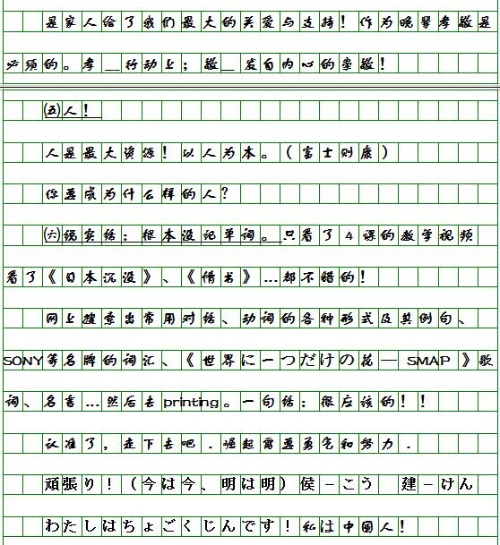 是家人给了我们最大的关爱与支持！作为晚辈孝敬是
必须的。孝__行动上；敬__发自内心的崇敬！
㈤人！
人是最大资源！以人为本。（富士则康）
你要成为什么样的人？
㈥说实话：根本没记单词。只看了4课的教学视频
看了《日本沉没》、《情书》...都不错的！
网上搜索出常用对话、动词的各种形式及其例句、
SONY等名牌的词汇、《世界に一つだけの花—SMAP》歌
词、名言...然后去printing。一句话：很应该的！！
认准了，走下去吧.崛起需要勇气和努力.
頑張り！（今は今、明は明）侯-こう 建-けん
わたしはちょごくじんです！私は中國人！